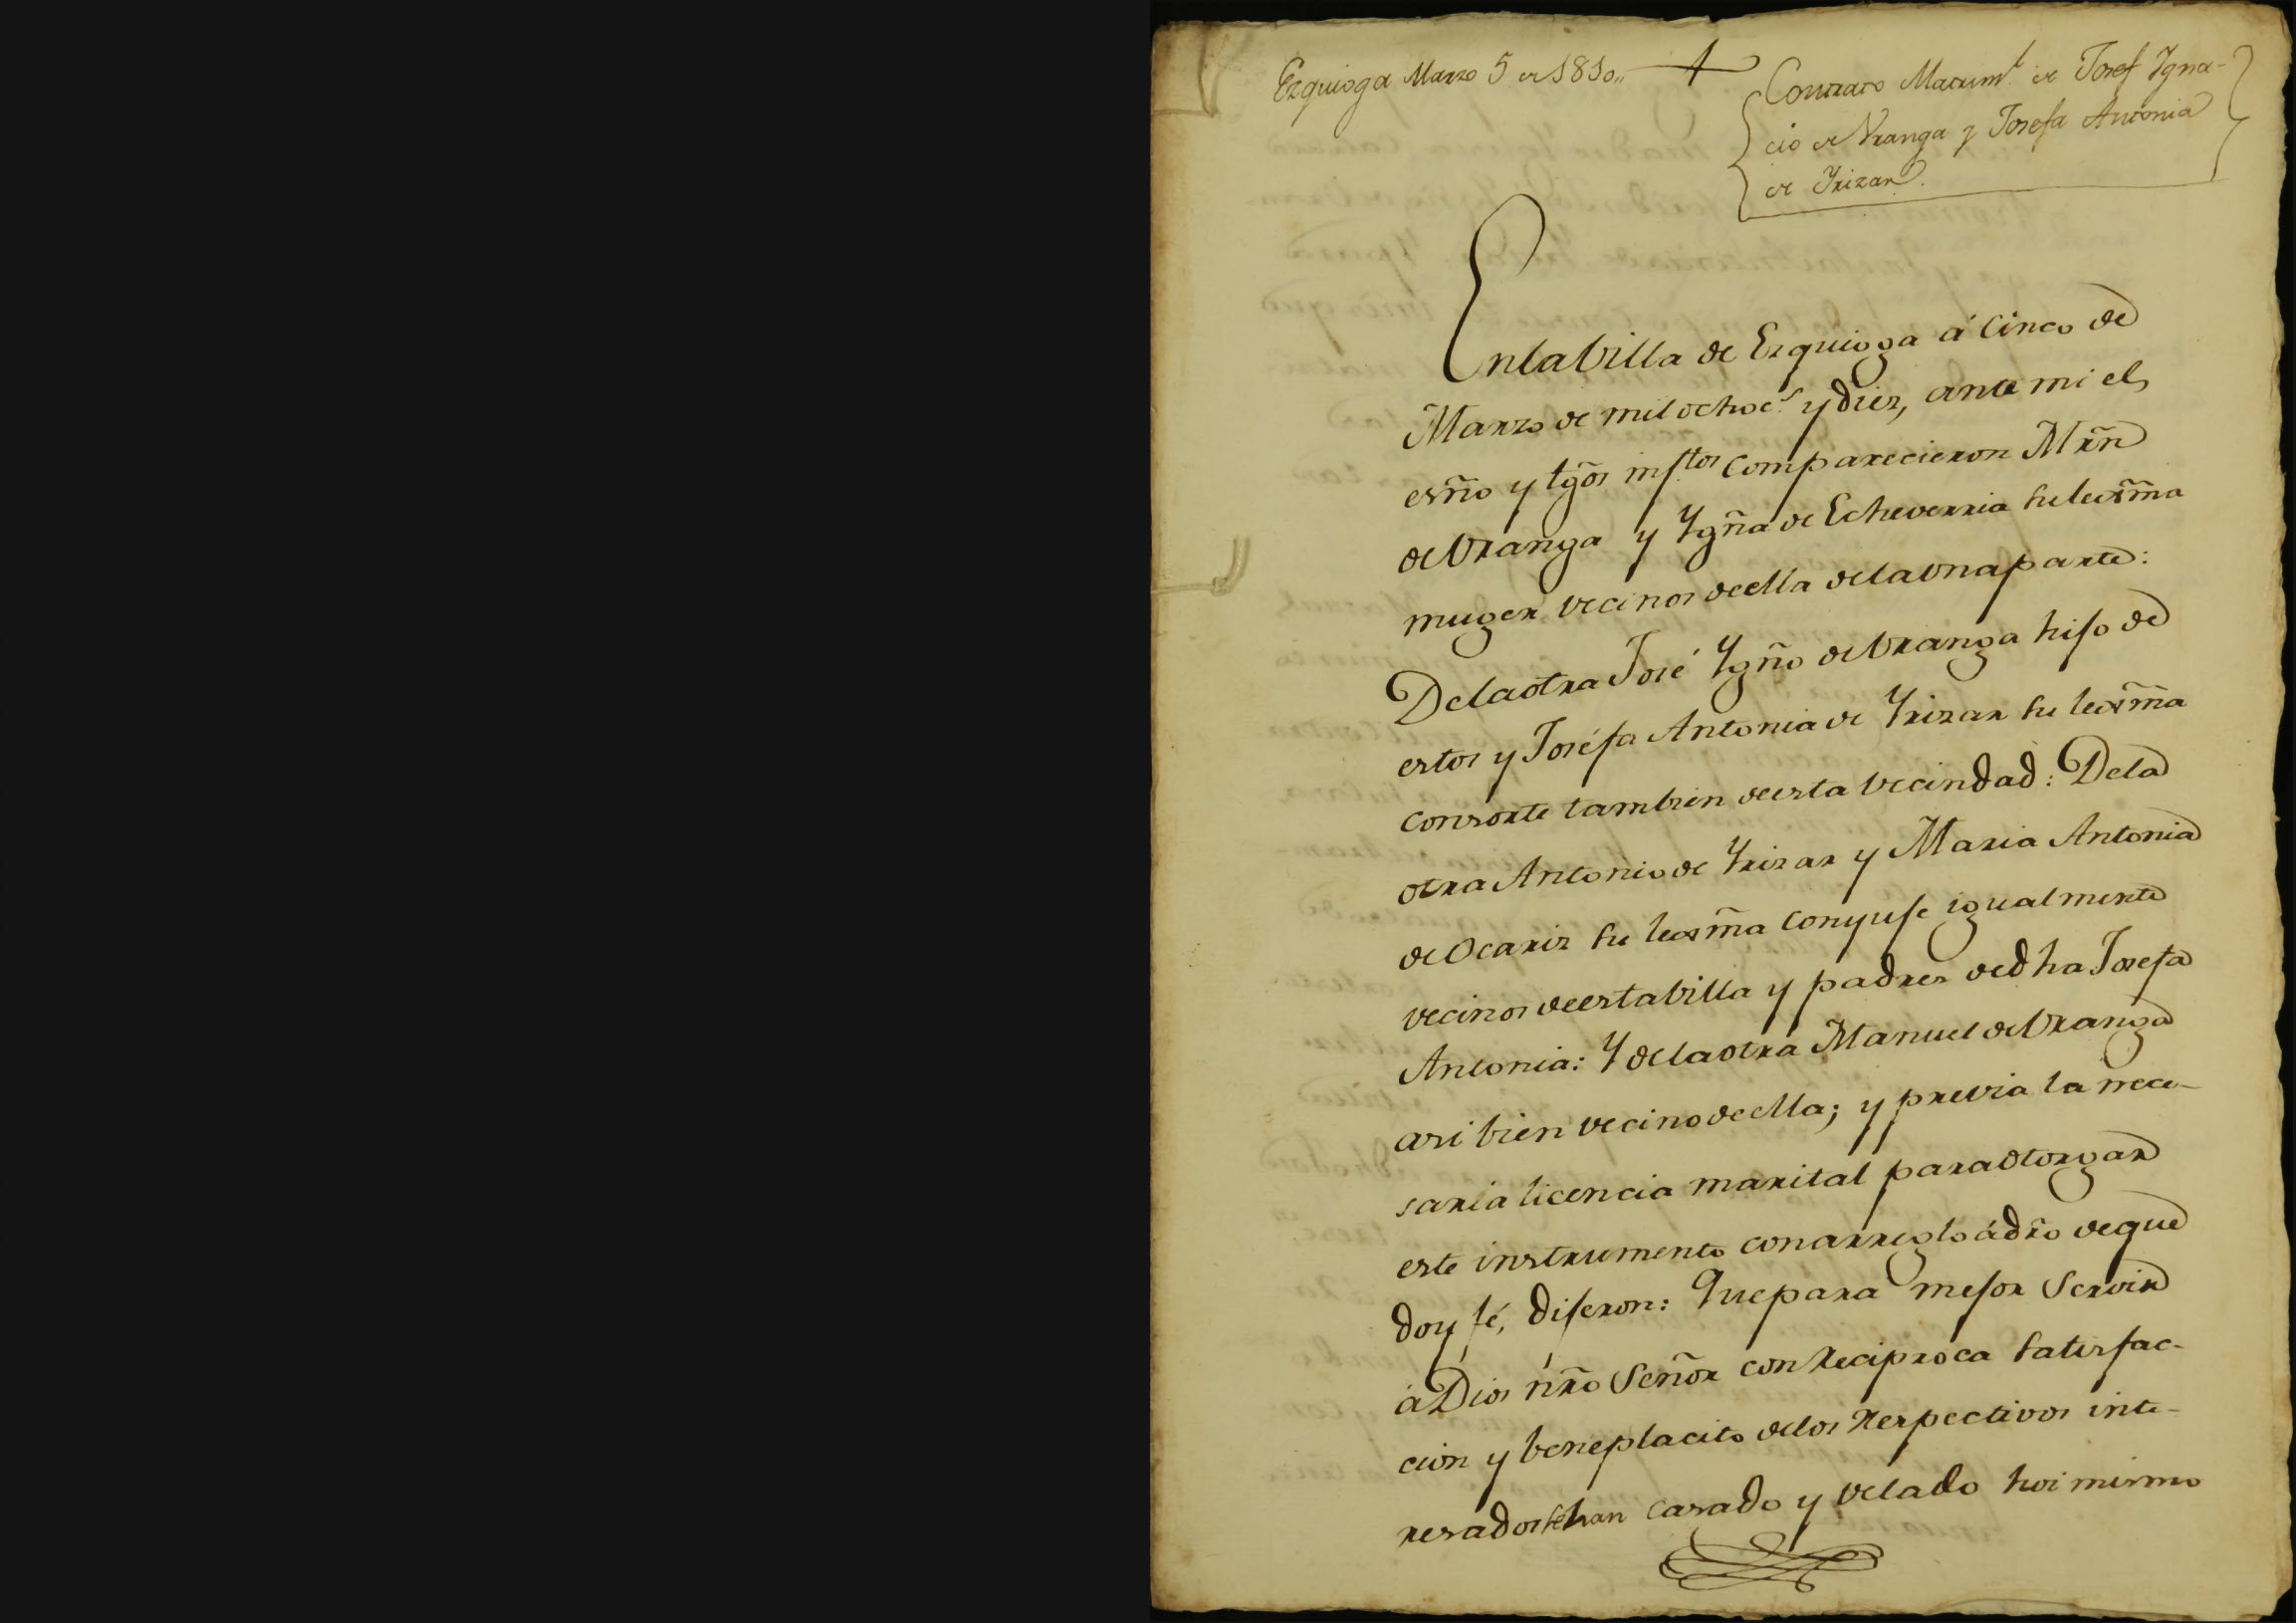 Ezquioga Marzo 5 de 1810,,
Contrato Matrim.l de Josef Ygna-
cio de Uranga y Josefa Antonia
de Yrizar.
En la Villa de Ezquioga á Cinco de
Marzo de mil ochoc.s y diez, ante mi el
esño y tgõs insf.tos comparecieron Mrñ
de Uranga y Ygña de Echeverria su lexma
muger vecinos de ella de la una parte:
De la otra José Ygño de Uranga hijo de
estos y Joséfa Antonia de Yrizar su lexma
consorte tambien de esta vecindad: De la
otra Antonio de Yrizar y Maria Antonia
de Ocariz su lexma conyuje igualmente
vecinos de esta villa y padres de dha Josefa
Antonia: Y de la otra Manuel de Uranga
asi bien vecino de ella; y previa la nece-
saria licencia marital para otorgar
este instrumento con arreglo á dro de que
doy fé, dijeron: Que para mejor Servir
á Dios nro Señor con reciproca satisfac-
cion y beneplacito de los respectivos inte-
resados se han casado y velado hoi mismo